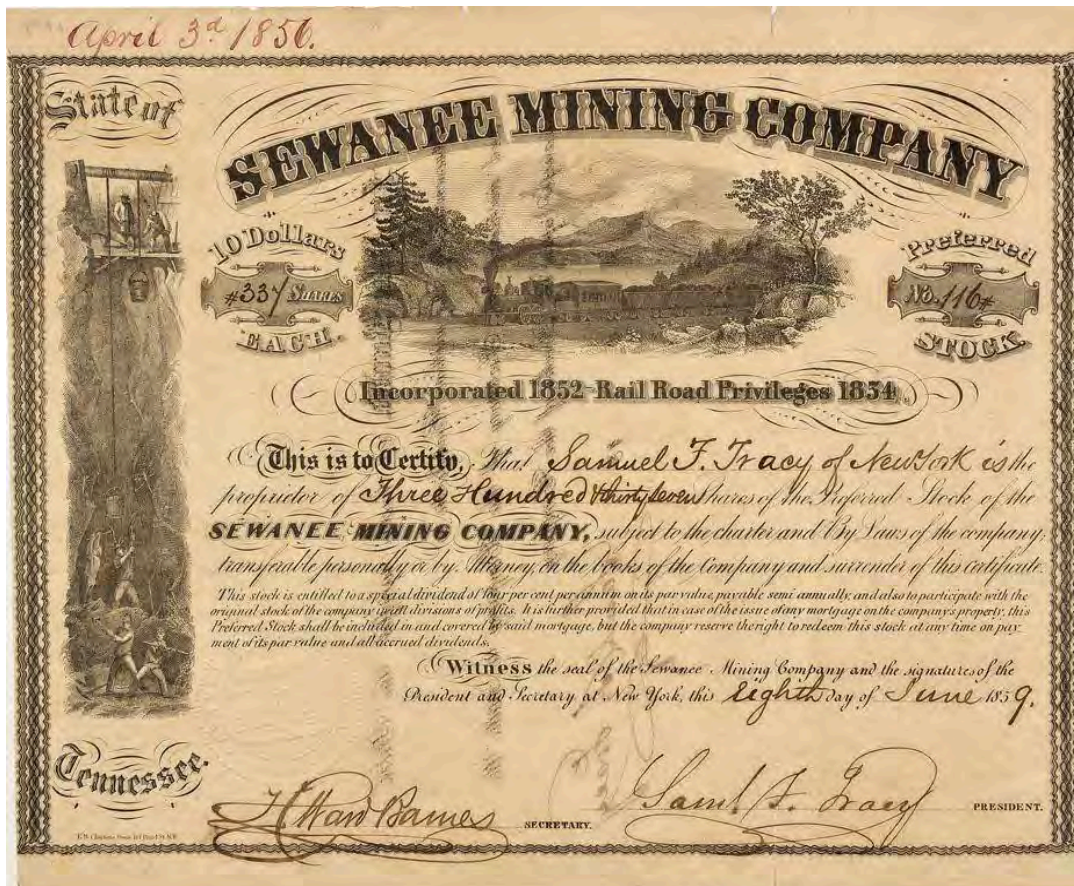 April 3d 1856.
State of
SEWANEE MINING COMPANY
10 Dollars
#337 SHARES
EACH.
Preferred
No. 116#
STOCK.
Incorporated 1852 Rail Road Privileges 1854
This is to Certify, That Samuel F. Tracy of New York is the
proprietor of Three Hundred & thirty seven Shares of the Preferred Stock of the
SEWANEE MINING COMPANY, subject to the charter and By Laws of the company;
transferable personally or by Attorney, on the books of the Company and surrender of this certificate.
This stock is entitled to a special dividend of four per cent per annum on its par value, payable semi annually, and also to participate with the
original stock of the company in all divisions of profits. It is further provided that in case of the issue of any mortgage on the companys property, this
Preferred Stock shall be included in and covered by said mortgage, but the company reserve the right to redeem this stock at any time on pay
ment of its par value and all accrued dividends.
Witness the seal of the Sewanee Mining Company and the signatures of the
President and Secretary at New York, this Eighth day of June 1859.
Tennessee.
H Ward Barnes SECRETARY.
Saml F. Tracy PRESIDENT.